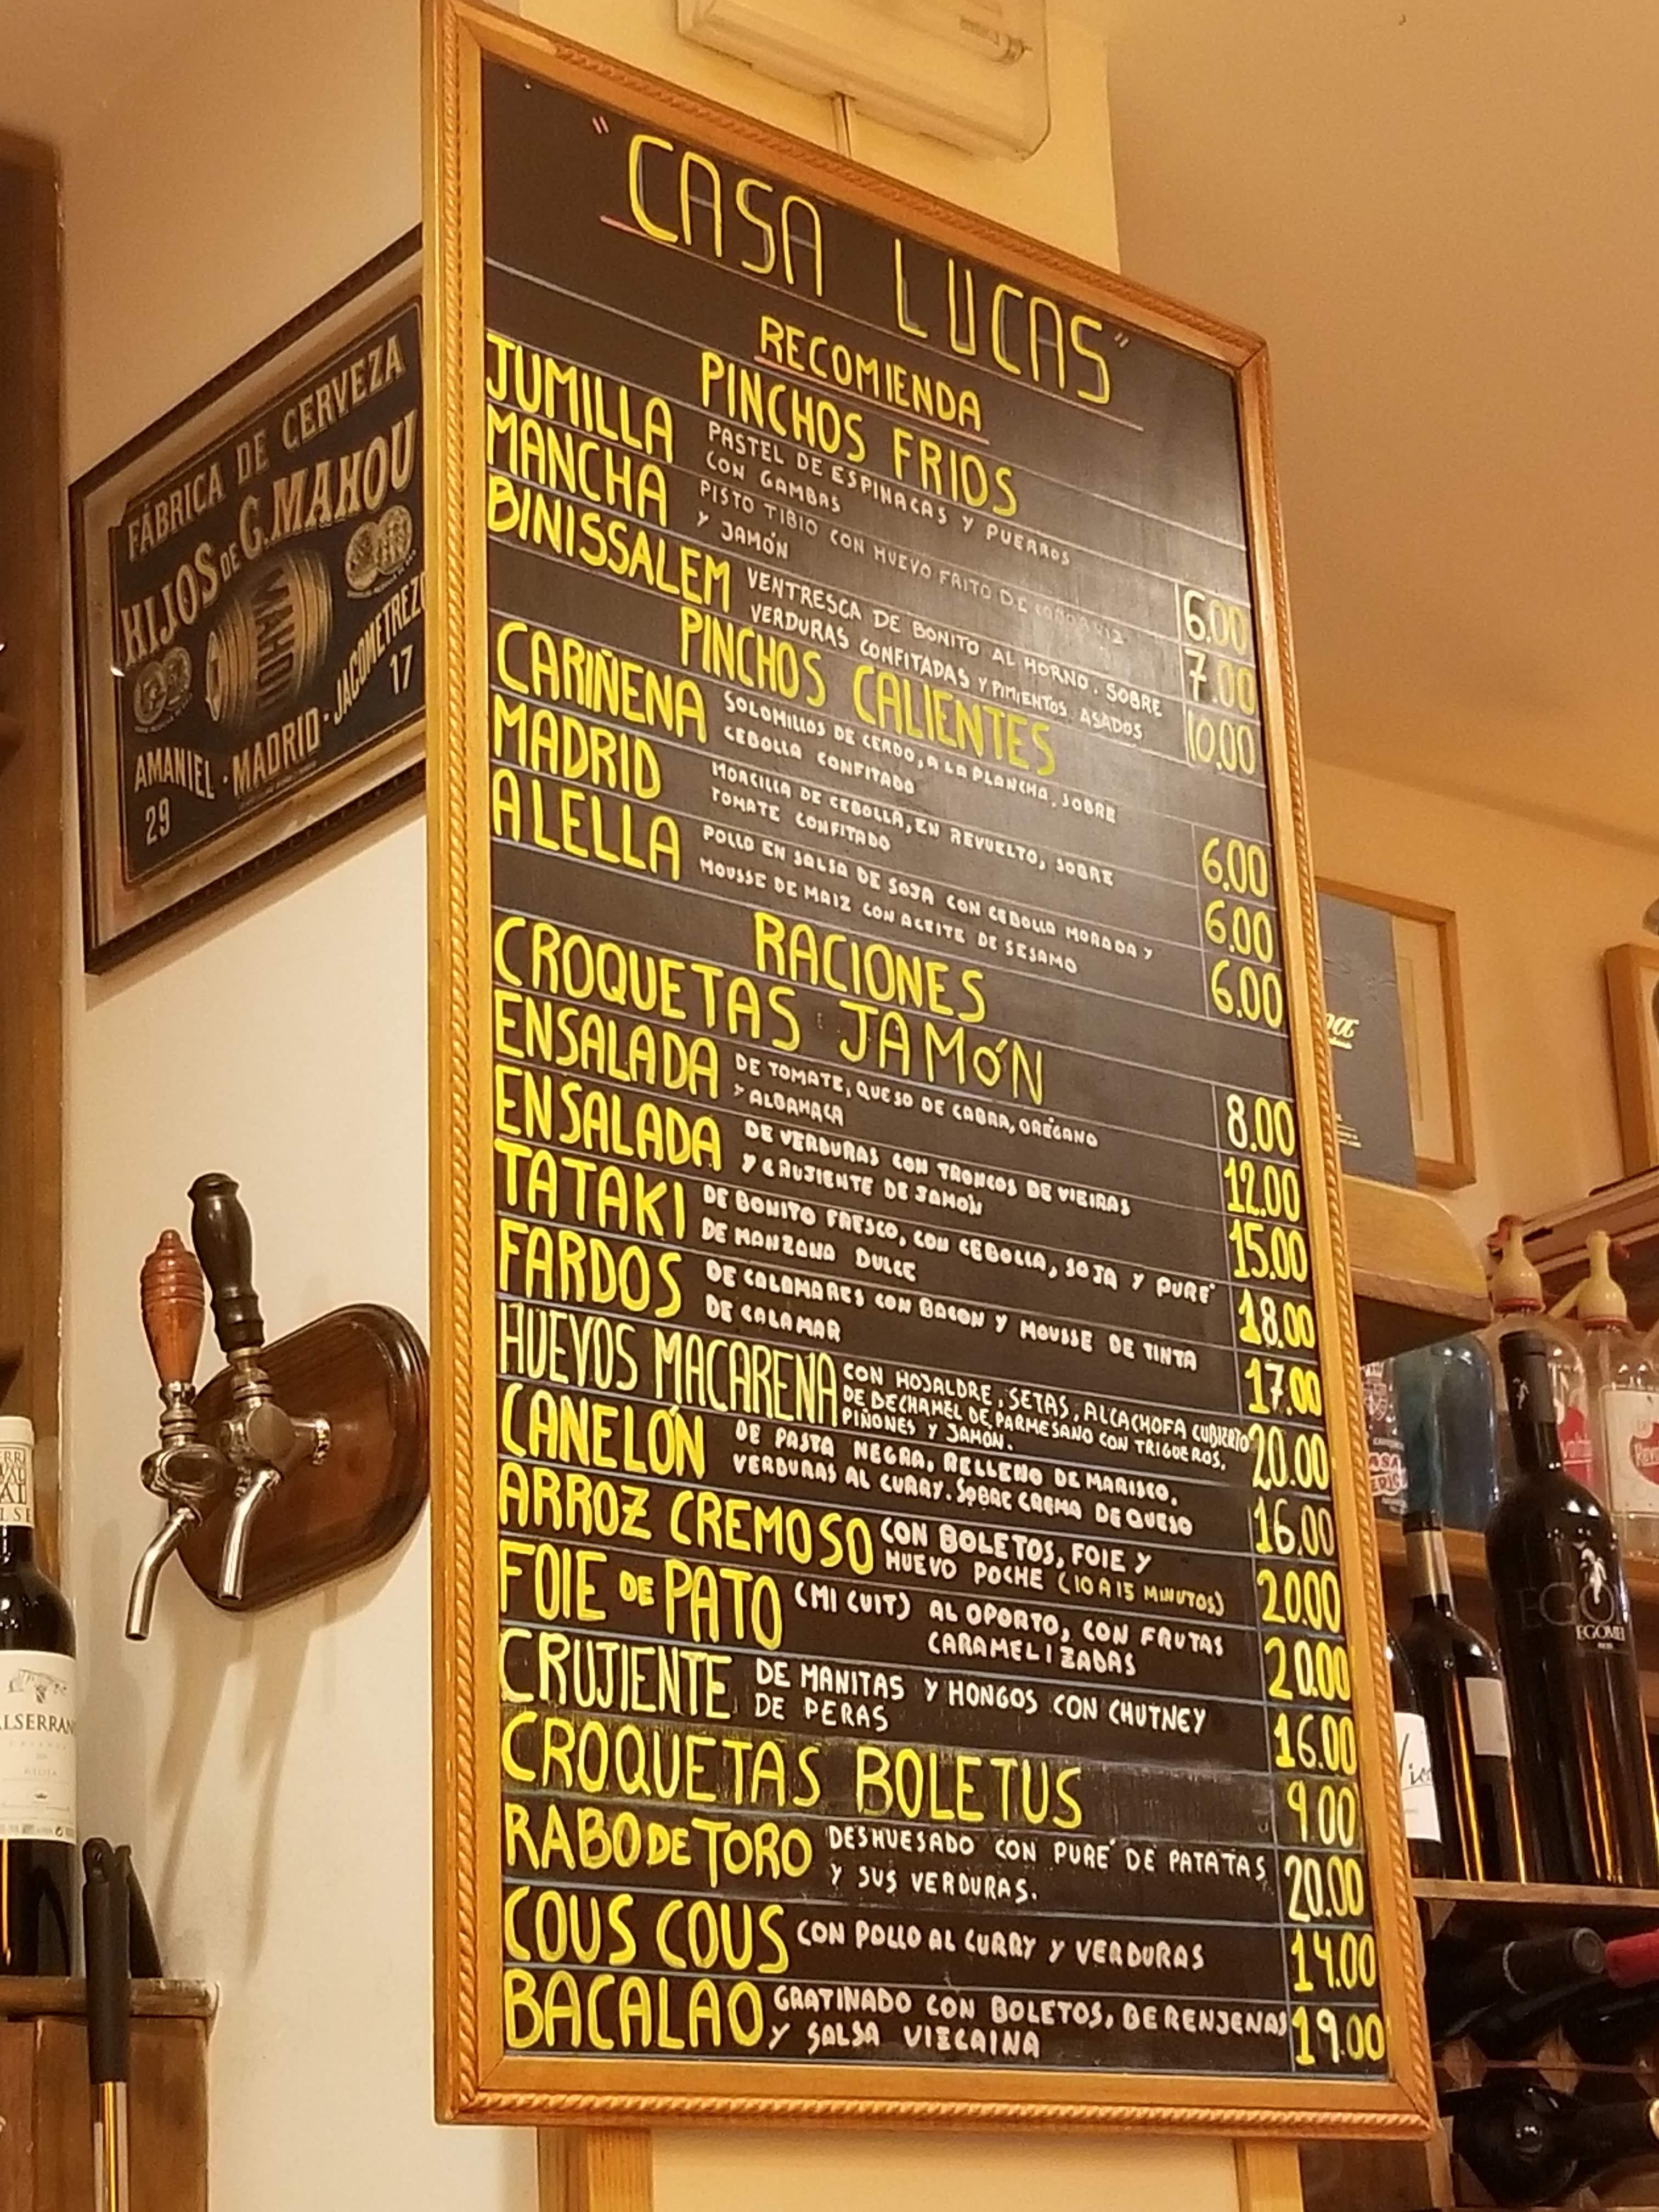 "CASA LUCAS"
RECOMIENDA
PINCHOS FRIOS
JUMILLA PASTEL DE ESPINACAS Y PUERROS
CON GAMBAS 6.00
MANCHA PISTO TIBIO CON HUEVO FRITO DE CODORNIZ
Y JAMÓN 7.00
BINISSALEM VENTRESCA DE BONITO AL HORNO. SOBRE
VERDURAS CONFITADAS Y PIMIENTOS ASADOS 10.00
PINCHOS CALIENTES
CARIÑENA SOLOMILLOS DE CERDO, A LA PLANCHA, SOBRE
CEBOLLA CONFITADO 6.00
MADRID MORCILLA DE CEBOLLA, EN REVUELTO, SOBRE
TOMATE CONFITADO 6.00
ALELLA POLLO EN SALSA DE SOJA CON CEBOLLA MORADA Y
MOUSSE DE MAIZ CON ACEITE DE SESAMO 6.00
RACIONES
CROQUETAS JAMÓN 8.00
ENSALADA DE TOMATE, QUESO DE CABRA, ORÉGANO
Y ALBAHACA 12.00
ENSALADA DE VERDURAS CON TRONCOS DE VIEIRAS
Y CRUJIENTE DE JAMÓN 15.00
TATAKI DE BONITO FRESCO, CON CEBOLLA, SOJA Y PURÉ
DE MANZANA DULCE 18.00
FARDOS DE CALAMARES CON BACON Y MOUSSE DE TINTA
DE CALAMAR 17.00
HUEVOS MACARENA CON HOJALDRE, SETAS, ALCACHOFA CUBIERTO
DE BECHAMEL DE PARMESANO CON TRIGUEROS,
PIÑONES Y JAMÓN. 20.00
CANELÓN DE PASTA NEGRA, RELLENO DE MARISCO,
VERDURAS AL CURRY. SOBRE CREMA DE QUESO 16.00
ARROZ CREMOSO CON BOLETOS, FOIE Y
HUEVO POCHE (10 A 15 MINUTOS) 20.00
FOIE DE PATO (MI CUIT) AL OPORTO, CON FRUTAS
CARAMELIZADAS 20.00
CRUJIENTE DE MANITAS Y HONGOS CON CHUTNEY
DE PERAS 16.00
CROQUETAS BOLETUS 9.00
RABO DE TORO DESHUESADO CON PURÉ DE PATATAS
Y SUS VERDURAS. 20.00
COUS COUS CON POLLO AL CURRY Y VERDURAS 14.00
BACALAO GRATINADO CON BOLETOS, BERENJENAS
Y SALSA VIZCAINA 19.00
FÁBRICA DE CERVEZA
HIJOS DE G. MAHOU
MAHOU
AMANIEL · MADRID · JACOMETREZO
29 17
RIOJA
EGOMEI